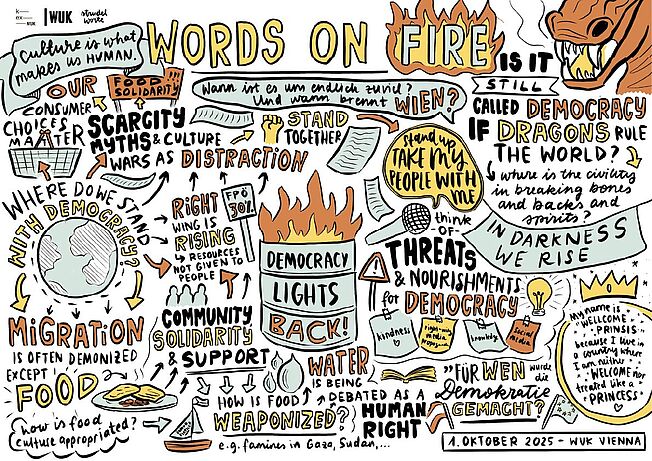 WUK
strudel
worte
WORDS ON FIRE
culture is what
makes us HUMAN
OUR
CONSUMER
CHOICES
MATTER
FOOD
SOLIDARITY!!!
SCARCITY
MYTHS & CULTURE
WARS AS DISTRACTION
Wann ist es um endlich zuviel?
Und wann brennt WIEN?
STAND
TOGETHER
stand up,
TAKE MY
PEOPLE WITH
ME
IS IT
STILL
CALLED DEMOCRACY
IF DRAGONS RULE
THE WORLD?
where is the civility
in breaking bones
and backs and
spirits?
IN DARKNESS
WE RISE
WHERE DO WE STAND
WITH DEMOCRACY?
RIGHT
WING IS
RISING
RESOURCES
NOT GIVEN TO
PEOPLE
FPÖ
30%
DEMOCRACY
LIGHTS
BACK!
think
-OF-
THREATS
& NOURISHMENTS
for DEMOCRACY
kindness
right-wing
media
propaganda
knowledge
social
media
My name is
"WELCOME
PRINSIS"
because I live in
a country where
I am neither
WELCOME nor
treated like a
PRINCESS"
MIGRATION
IS OFTEN DEMONIZED
EXCEPT
FOOD
how is food
culture appropriated?
COMMUNITY
SOLIDARITY
& SUPPORT
HOW IS FOOD
WEAPONIZED?
e.g. famines in Gaza, Sudan,...
WATER
IS BEING
DEBATED AS A
HUMAN
RIGHT
"FÜR WEN wurde
die
Demokratie
GEMACHT?"
1. OKTOBER 2025 - WUK VIENNA